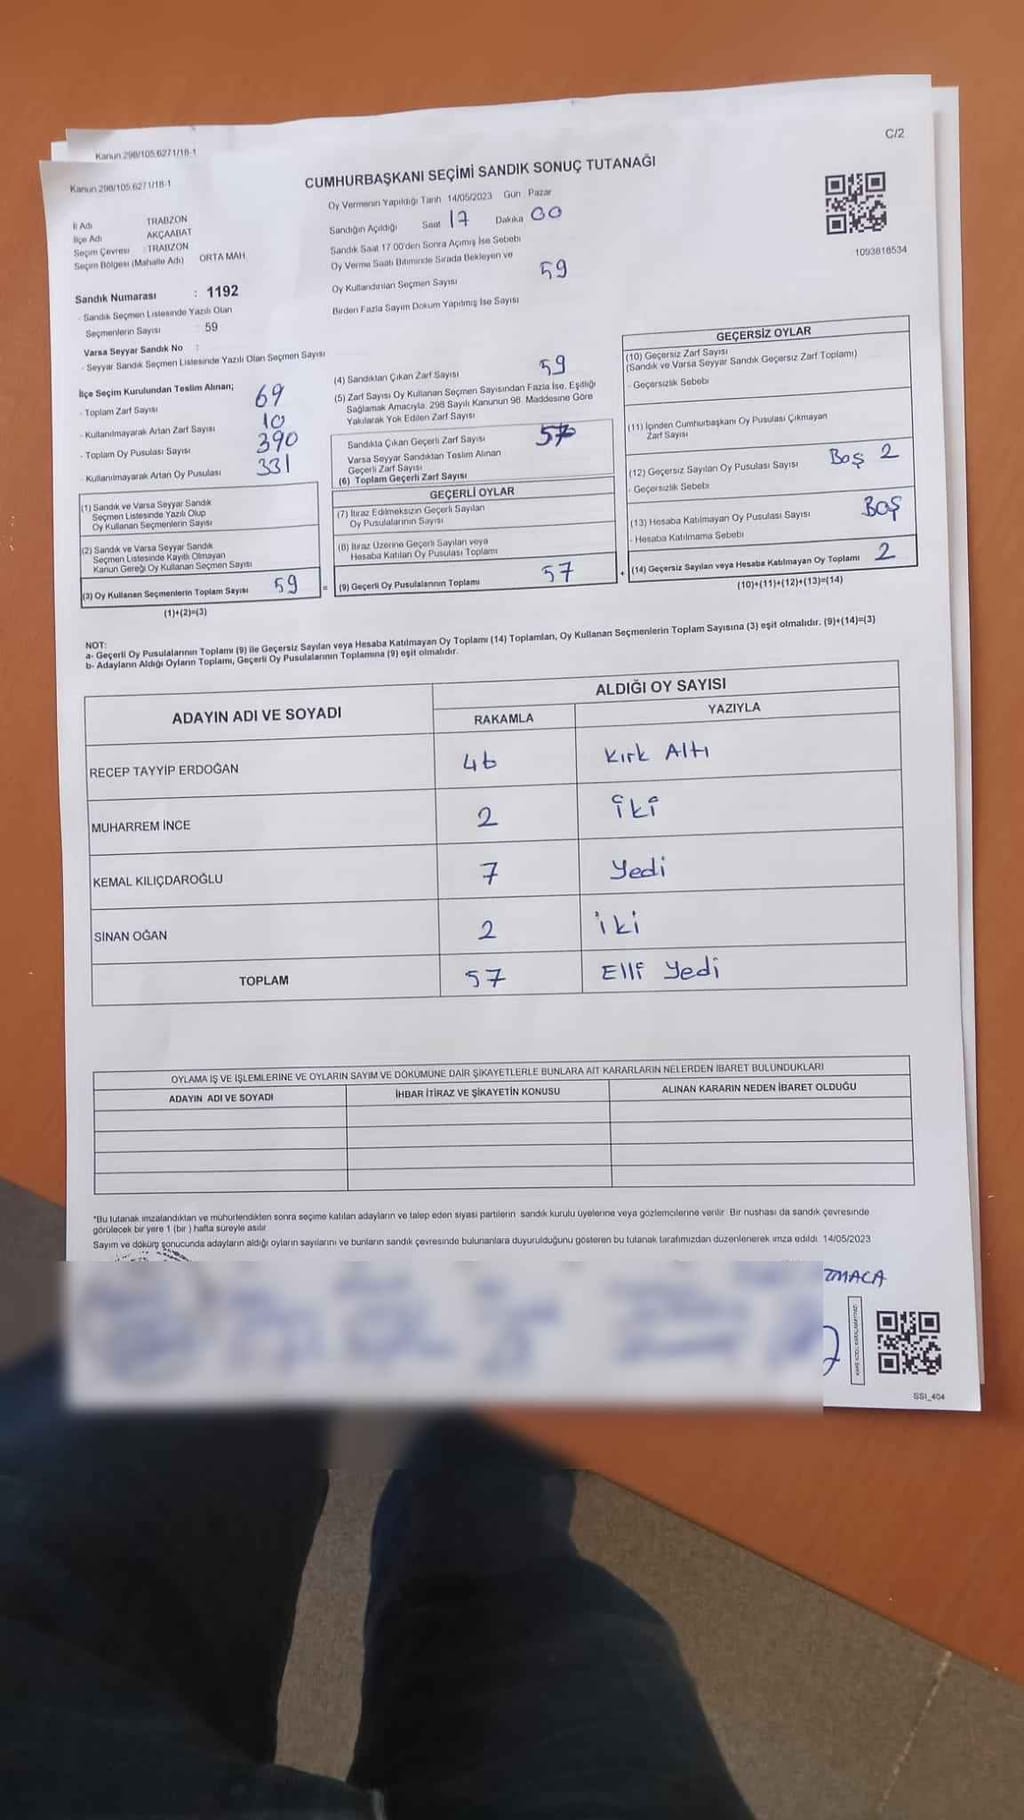 Kanun 298/105,6271/18-1
C/2
Kanun 298/105,6271/18-1
CUMHURBAŞKANI SEÇİMİ SANDIK SONUÇ TUTANAĞI
Oy Vermenin Yapıldığı Tarih 14/05/2023 Gün Pazar
İl Adı TRABZON
İlçe Adı AKÇAABAT
Seçim Çevresi : TRABZON
Seçim Bölgesi (Mahalle Adı) ORTA MAH.
Sandık Numarası : 1192
- Sandık Seçmen Listesinde Yazılı Olan
Seçmenlerin Sayısı : 59
Varsa Seyyar Sandık No :
- Seyyar Sandık Seçmen Listesinde Yazılı Olan Seçmen Sayısı
Sandığın Açıldığı Saat 17 Dakika 00
Sandık Saat 17 00'den Sonra Açımış İse Sebebi
Oy Verme Saati Bitiminde Sırada Bekleyen ve
Oy Kullandırılan Seçmen Sayısı 59
Birden Fazla Sayım Döküm Yapılmış İse Sayısı
1093818534
İlçe Seçim Kurulundan Teslim Alınan;
- Toplam Zarf Sayısı 69
- Kullanılmayarak Artan Zarf Sayısı 10
- Toplam Oy Pusulası Sayısı 390
- Kullanılmayarak Artan Oy Pusulası 331
(1) Sandık ve Varsa Seyyar Sandık
Seçmen Listesinde Yazılı Olup
Oy Kullanan Seçmenlerin Sayısı
(2) Sandık ve Varsa Seyyar Sandık
Seçmen Listesinde Kayıtlı Olmayan
Kanun Gereği Oy Kullanan Seçmen Sayısı
(3) Oy Kullanan Seçmenlerin Toplam Sayısı 59 =
(1)+(2)=(3)
(4) Sandıktan Çıkan Zarf Sayısı 59
(5) Zarf Sayısı Oy Kullanan Seçmen Sayısından Fazla İse, Eşitliği
Sağlamak Amacıyla, 298 Sayılı Kanunun 98. Maddesine Göre
Yakılarak Yok Edilen Zarf Sayısı
Sandıkta Çıkan Geçerli Zarf Sayısı 57
Varsa Seyyar Sandıktan Teslim Alınan
Geçerli Zarf Sayısı
(6) Toplam Geçerli Zarf Sayısı
GEÇERLİ OYLAR
(7) İtiraz Edilmeksizin Geçerli Sayılan
Oy Pusulalarının Sayısı
(8) İtiraz Üzerine Geçerli Sayılan veya
Hesaba Katılan Oy Pusulası Toplamı
(9) Geçerli Oy Pusulalarının Toplamı 57 +
GEÇERSİZ OYLAR
(10) Geçersiz Zarf Sayısı
(Sandık ve Varsa Seyyar Sandık Geçersiz Zarf Toplamı)
- Geçersizlik Sebebi
(11) İçinden Cumhurbaşkanı Oy Pusulası Çıkmayan
Zarf Sayısı
(12) Geçersiz Sayılan Oy Pusulası Sayısı Boş 2
- Geçersizlik Sebebi
(13) Hesaba Katılmayan Oy Pusulası Sayısı BOŞ
- Hesaba Katılmama Sebebi
(14) Geçersiz Sayılan veya Hesaba Katılmayan Oy Toplamı 2
(10)+(11)+(12)+(13)=(14)
NOT:
a- Geçerli Oy Pusulalarının Toplamı (9) ile Geçersiz Sayılan veya Hesaba Katılmayan Oy Toplamı (14) Toplamları, Oy Kullanan Seçmenlerin Toplam Sayısına (3) eşit olmalıdır. (9)+(14)=(3)
b- Adayların Aldığı Oyların Toplamı, Geçerli Oy Pusulalarının Toplamına (9) eşit olmalıdır.
ADAYIN ADI VE SOYADI ALDIĞI OY SAYISI
RAKAMLA YAZIYLA
RECEP TAYYİP ERDOĞAN 46 Kırk Altı
MUHARREM İNCE 2 İki
KEMAL KILIÇDAROĞLU 7 Yedi
SİNAN OĞAN 2 İki
TOPLAM 57 Elli Yedi
OYLAMA İŞ VE İŞLEMLERİNE VE OYLARIN SAYIM VE DÖKÜMÜNE DAİR ŞİKAYETLERLE BUNLARA AİT KARARLARIN NELERDEN İBARET BULUNDUKLARI
ADAYIN ADI VE SOYADI İHBAR İTİRAZ VE ŞİKAYETİN KONUSU ALINAN KARARIN NEDEN İBARET OLDUĞU
*Bu tutanak imzalandıktan ve mühürlendikten sonra seçime katılan adayların ve talep eden siyasi partilerin sandık kurulu üyelerine veya gözlemcilerine verilir. Bir nüshası da sandık çevresinde
görülecek bir yere 1 (bir ) hafta süreyle asılır
Sayım ve döküm sonucunda adayların aldığı oyların sayılarını ve bunların sandık çevresinde bulunanlara duyurulduğunu gösteren bu tutanak tarafımızdan düzenlenerek imza edildi. 14/05/2023
SSI_404